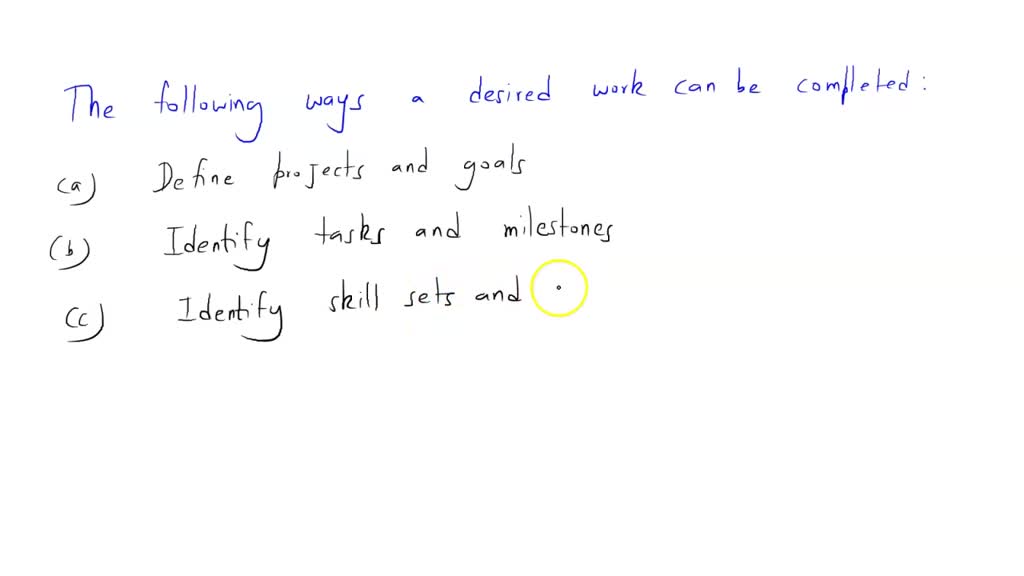 The following ways a desired work can be completed:
(a) Define projects and goals
(b) Identify tasks and milestones
(c) Identify skill sets and